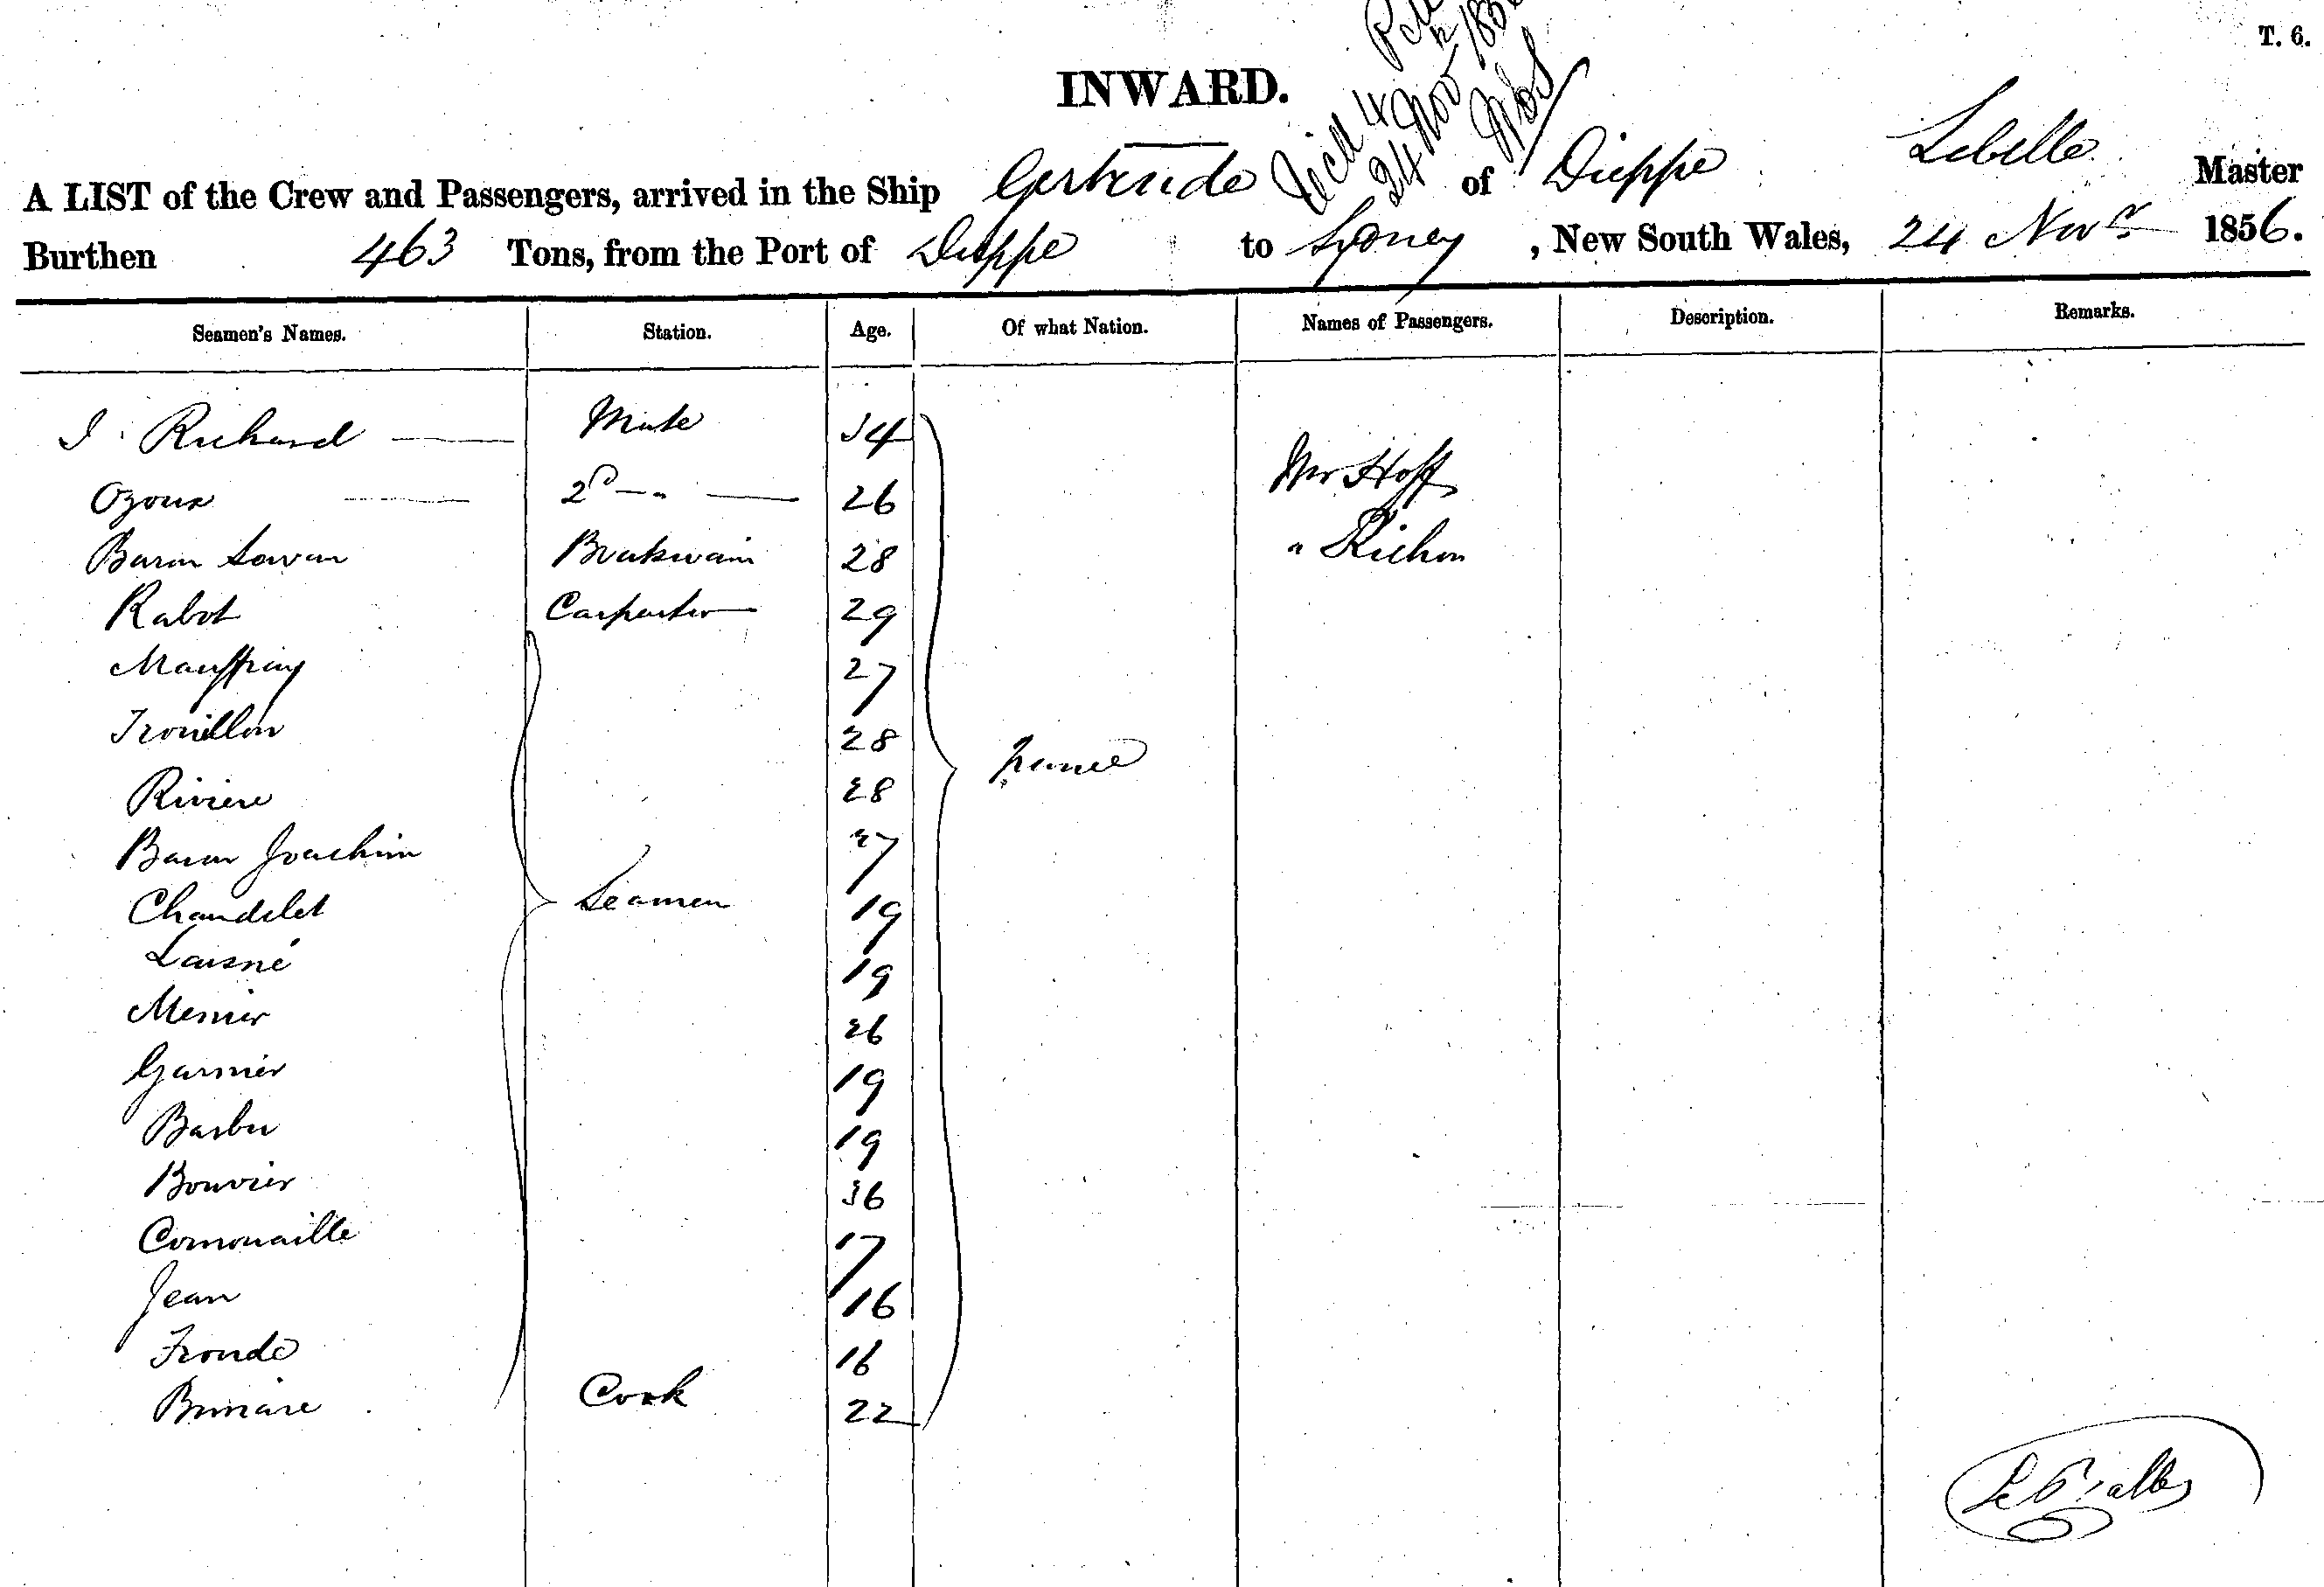 T. 6.
INWARD.
Recd 4
24 Nov 1856
A LIST of the Crew and Passengers, arrived in the Ship Gertrude of Dieppe Lebelle Master
Burthen 463 Tons, from the Port of Dieppe to Sydney, New South Wales, 24 Novr 1856.
Seamen's Names. Station. Age. Of what Nation. Names of Passengers. Description. Remarks.
J. Richard Mate 34
Ozoux 2d " 26 Mr Hoff
Baron Boatswain 28 " Richon
Rabot Carpenter 29
Mauffray 27
Trouillon 28
Riviere 28 France
Baron Joachim 27
Chandelet Seamen 19
Laisné 19
Mesnier 26
Garnier 19
Barbu 19
Bouvier 36
Cornouaille 17
Jean 16
Fronde 16
Cook 22